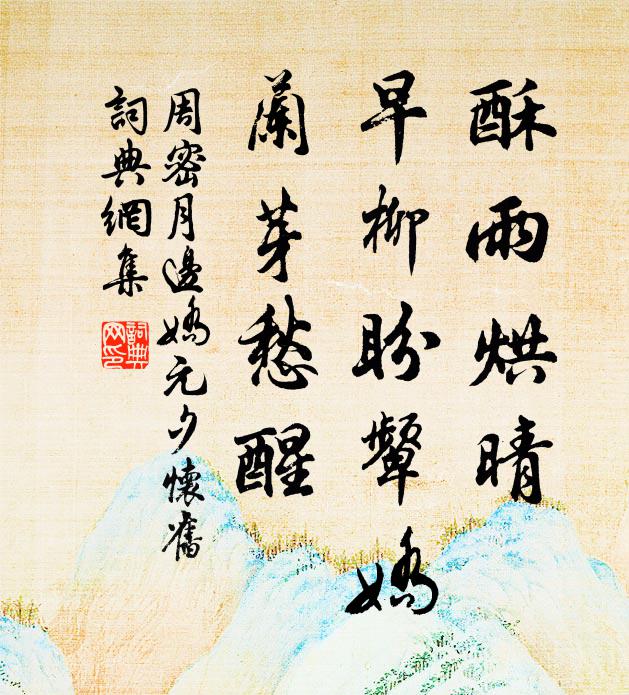 酥雨烘晴
早柳盼顰嬌
蘭芽愁醒
周密月邊嬌元夕懷舊
詞典網集
詞典網印